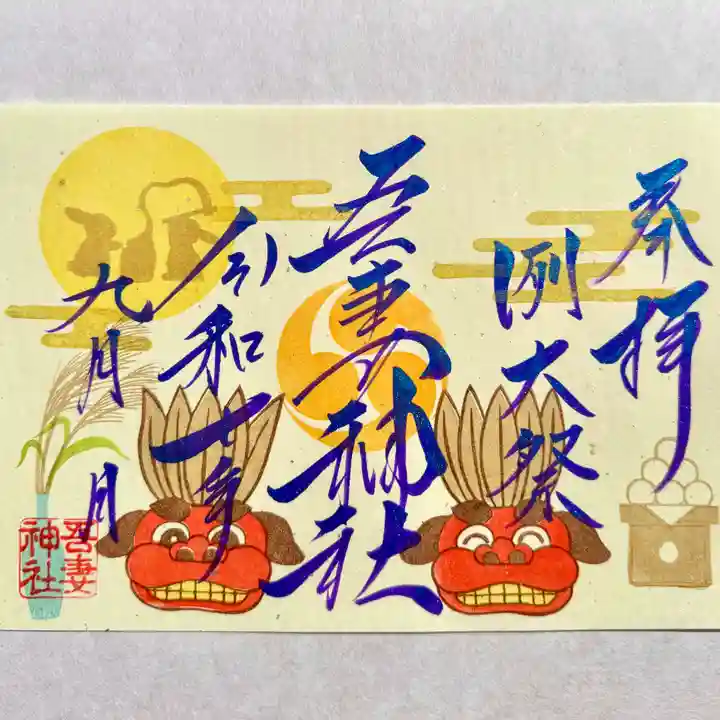 奉拝
例大祭
吾妻神社
令和七年
九月 月
吾妻
神社